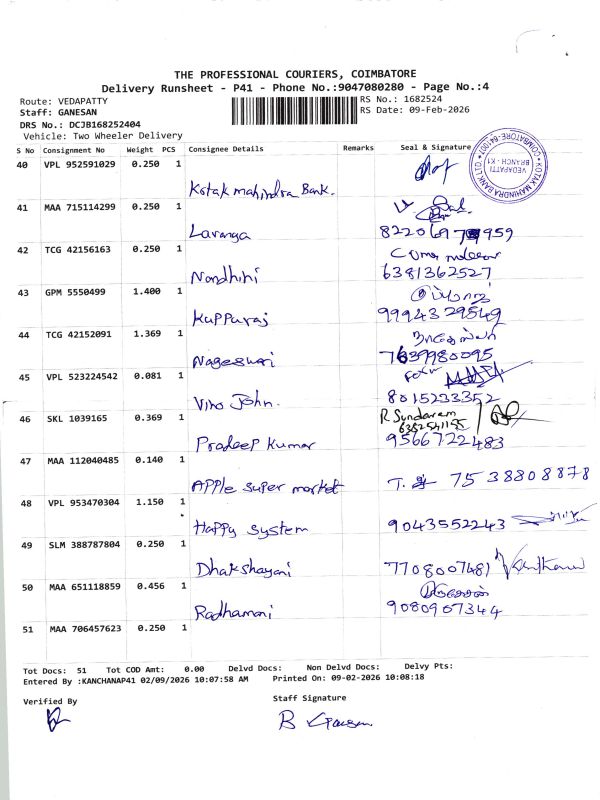 THE PROFESSIONAL COURIERS, COIMBATORE
Delivery Runsheet - P41 - Phone No.:9047080280 - Page No.:4
Route: VEDAPATTY
RS No.: 1682524
Staff: GANESAN
RS Date: 09-Feb-2026
DRS No.: DCJB168252404
Vehicle: Two Wheeler Delivery
S No Consignment No Weight PCS Consignee Details Remarks Seal & Signature
KOTAK MAHINDRA BANK LTD
VEDAPATTI
BRANCH - K1
40 VPL 952591029 0.250 1
Kotak mahindra Bank.
41 MAA 715114299 0.250 1
Lavanga
42 TCG 42156163 0.250 1
Nandhini 6381362527
43 GPM 5550499 1.400 1
குப்புராஜ்
Kuppuraj 9994329549
44 TCG 42152091 1.369 1
நாகேஸ்வரி
Nageswari 7639980095
45 VPL 523224542 0.081 1
Vino John. 8015233352
46 SKL 1039165 0.369 1
R Sundaram
Pradeep Kumar 9566722483
47 MAA 112040485 0.140 1
Apple super market T. 7538808878
48 VPL 953470304 1.150 1
Happy system 9043552243
49 SLM 388787804 0.250 1
Dhakshayani 7708007481
50 MAA 651118859 0.456 1
Radhamani 9080907344
51 MAA 706457623 0.250 1
Tot Docs: 51 Tot COD Amt: 0.00 Delvd Docs: Non Delvd Docs: Delvy Pts:
Entered By :KANCHANAP41 02/09/2026 10:07:58 AM Printed On: 09-02-2026 10:08:18
Verified By
Staff Signature
B Ganesan